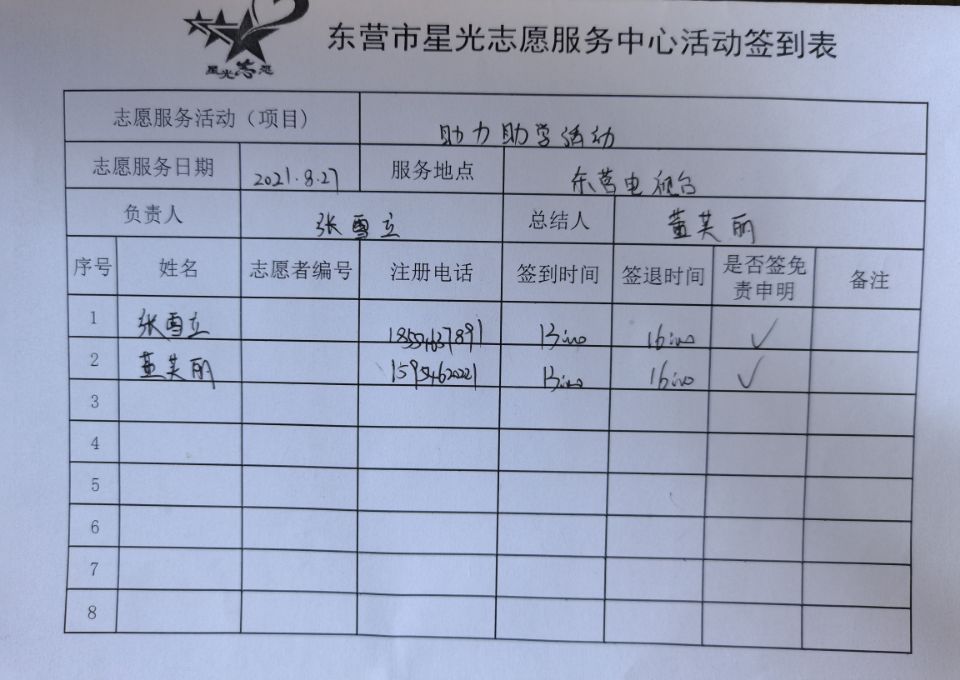 星光志愿
东营市星光志愿服务中心活动签到表
志愿服务活动（项目） 助力助学活动
志愿服务日期 2021.8.27 服务地点 东营电视台
负责人 张雪立 总结人 董芙丽
序号 姓名 志愿者编号 注册电话 签到时间 签退时间 是否签免责申明 备注
1 张雪立 18554637891 13:00 16:00 ✓
2 董芙丽 15954620221 13:00 16:00 ✓
3
4
5
6
7
8